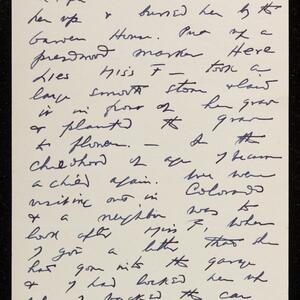 her up & buried her by the
Garden House. Put up a
pressed wood marker Here
Lies Miss F — took a
large smooth stone & laid
it in front of her grave
& planted the grave
to flowers. — In the
childhood of age I became
a child again. We were
visiting out in Colorado
& a neighbor was to
look after Miss F, when
I got a letter that she
had gone into the garage
& I had locked her up
when I backed the car